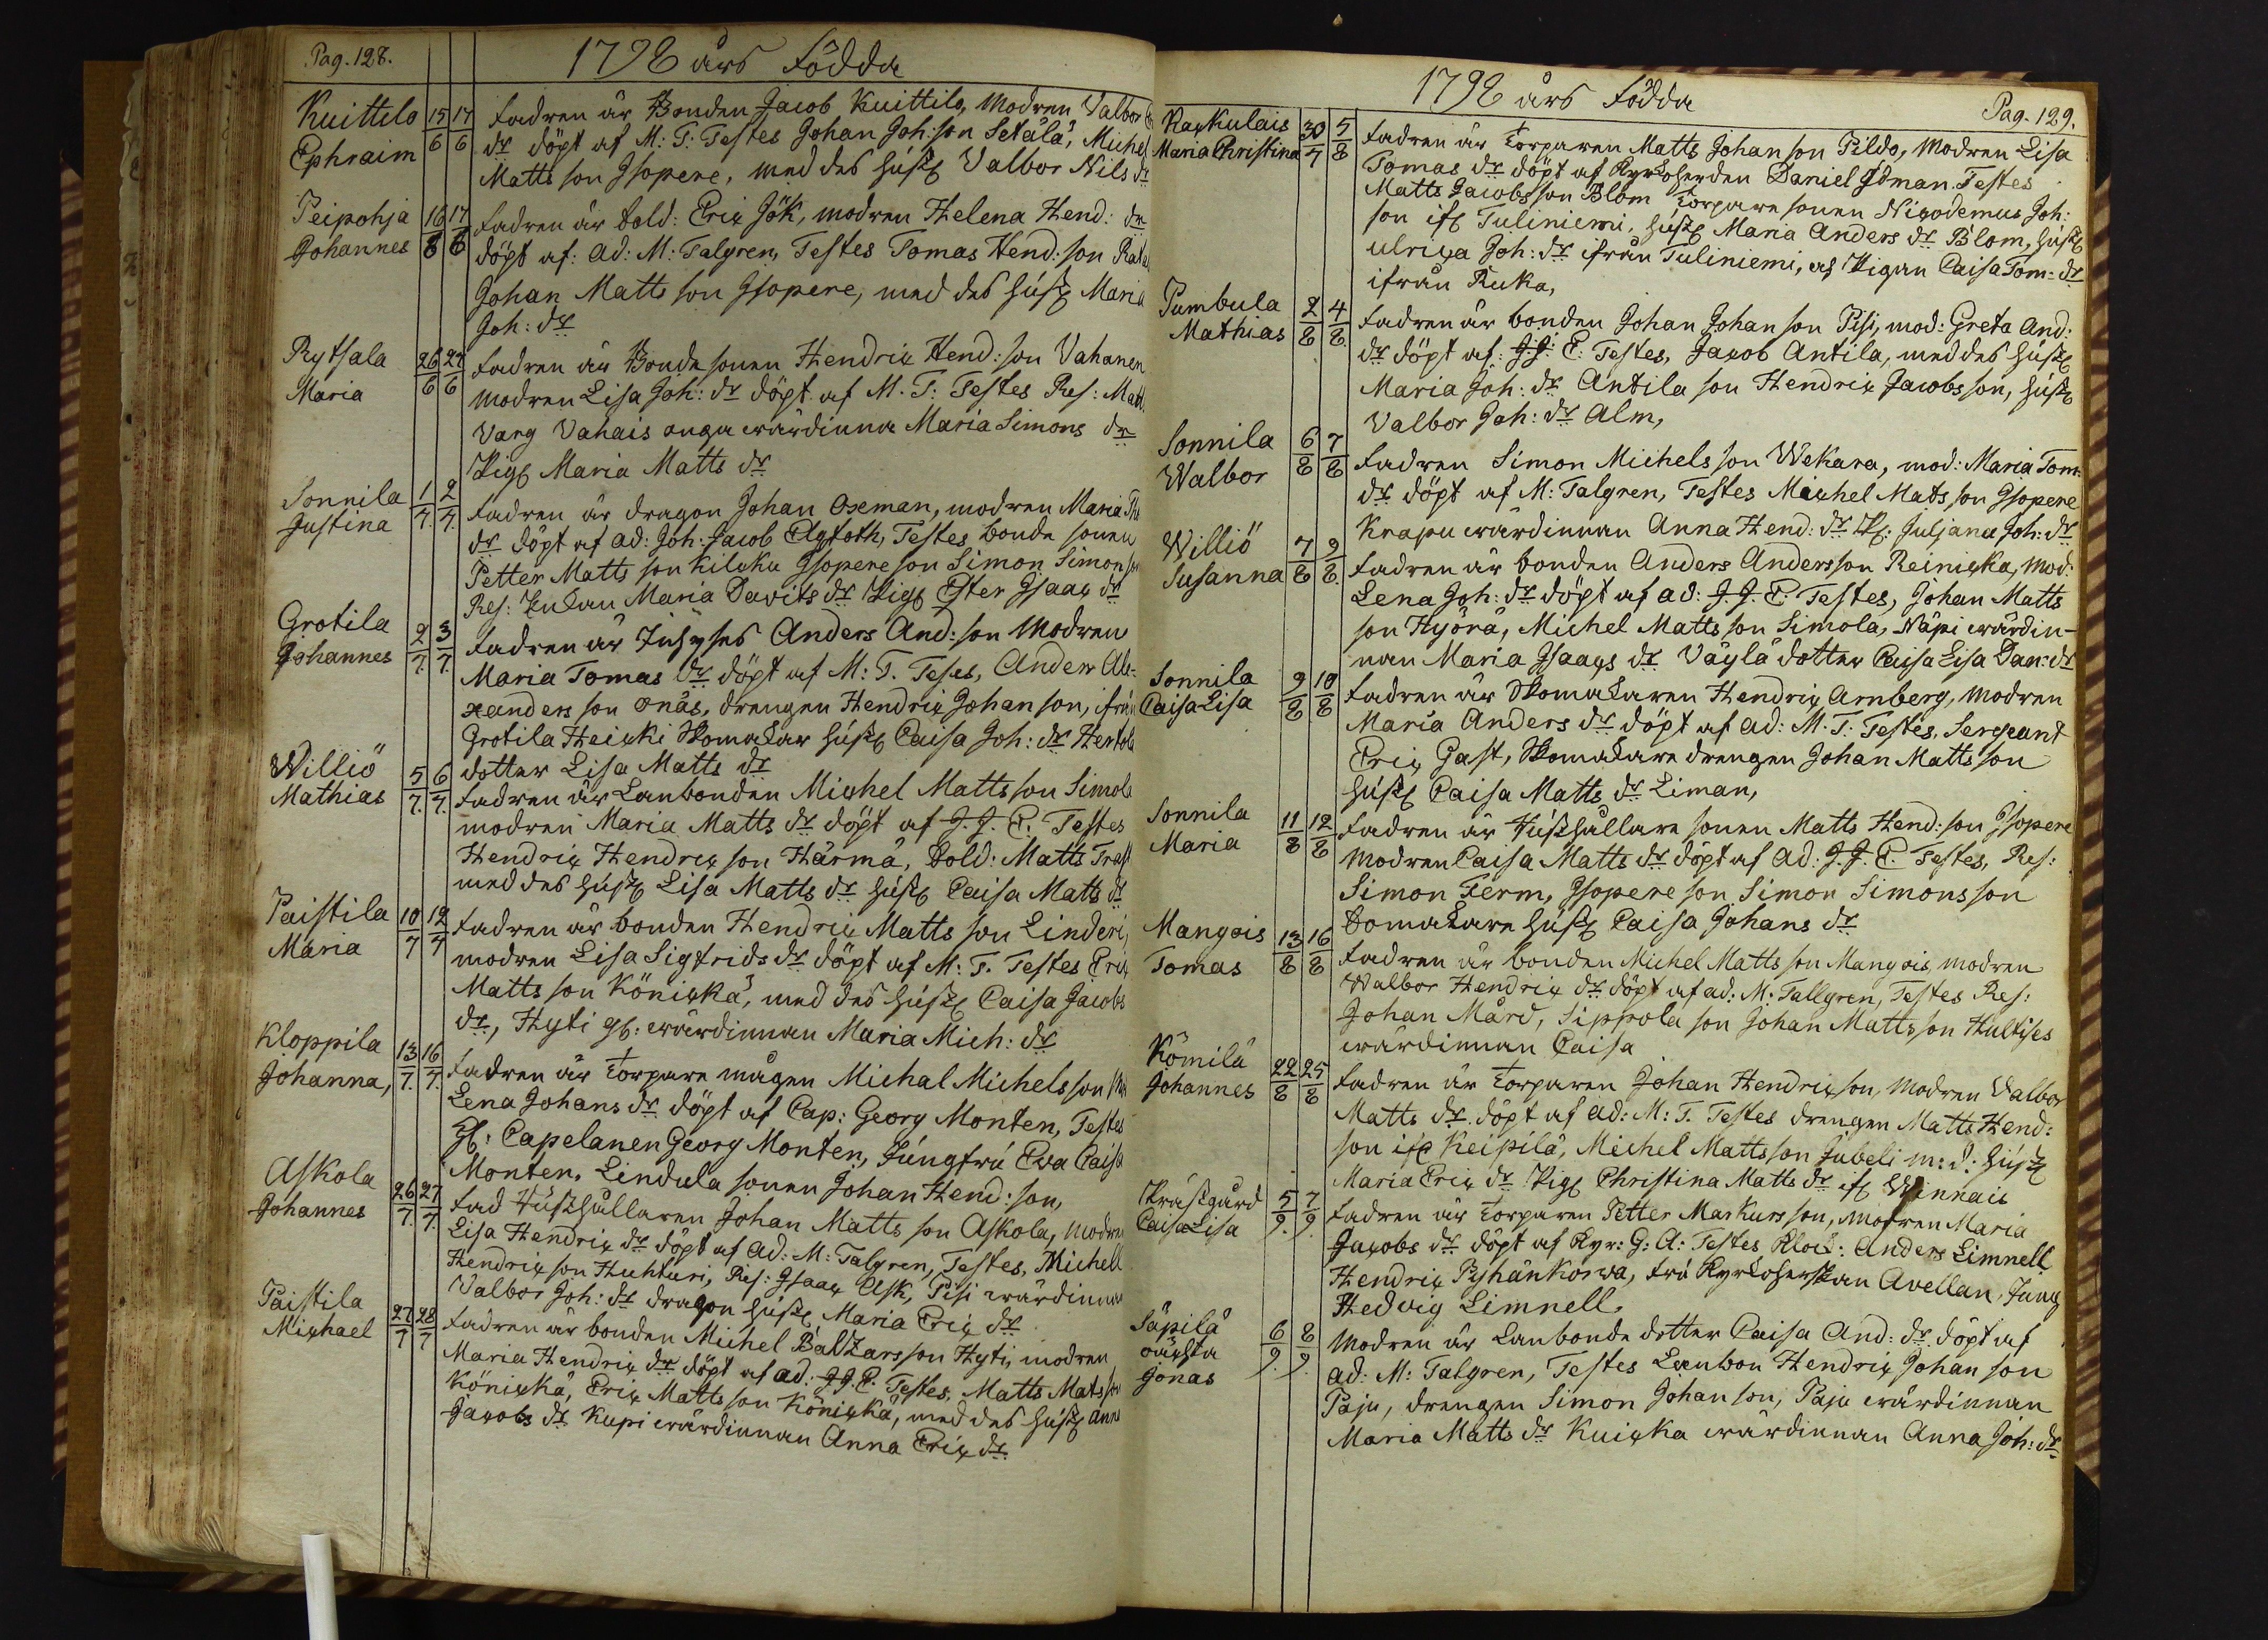 Pag. 128.
1798 års Födda
Kuittilo 15/6 17/6 Fadren är Bonden Jacob Kuittilo, Modren Valbor
Ephraim dr döpt af M: T: Testes Johan Joh: son Setälä, Michel
Matts son Isopere, med des hust Valbor Nils dr
Peipohja 16/6 17/6 Fadren är Sold: Eric Jök, modren Helena Hend: dr
Johannes döpt af: ad: M: Talgren, Testes Tomas Hend: son
Johan Matts son Isopere, med des hust Maria
Joh: dr
Rytsala 26/6 27/6 Fadren är Bonde sonen Hendric Hend: son Vahanen
Maria Modren Lisa Joh: dr döpt af M. T: Testes Res: Matt
Varg Vahais unga wärdinna Maria Simons dr
Pig Maria Matts dr
Sonnila 1/7. 2/7. Fadren är dragon Johan Oxeman, modren Maria
Justina dr döpt af ad: Joh: Jacob Elgfoth, Testes bonde sonen
Petter Matts son Kilcku Isopere son Simon Simons son
Res: Enkan Maria Davits dr Pig Ester Isaac dr
Grotila 2/7. 3/7. Fadren är Inhyses Anders And: son Modren
Johannes Maria Tomas dr döpt af M: T. Testes, Anders Ale-
xanders son Onäs, drengen Hendric Johan son, ifrån
Grotila Heicki Skomakar hust Caisa Joh: dr Hertola
dotter Lisa Matts dr
Williö 5/7. 6/7. Fadren är Lanbonden Michel Matts son Simola
Mathias modren Maria Matts dr döpt af J. J. E: Testes
Hendric Hendric son Härmä, Sold: Matts Trast
med des hust Lisa Matts dr hust Caisa Matts dr
Paistila 10/7 12/7 Fadren är bonden Hendric Matts son Linderi,
Maria modren Lisa Sigfrids dr döpt af M: T. Testes Eric
Matts son Könickä, med des hust Caisa Jacobs
dr, Hyti gl: wärdinnan Maria Mich: dr
Kloppila 13/7. 16/7. Fadren är Torpare mågen Michal Michels son
Johanna, Lena Johans dr döpt af Cap: Georg Monten, Testes
Gl: Capelanen Georg Monten, Jungfru Eva Caisa
Monten. Lindula sonen Johan Hend: son,
Askola 26/7. 27/7. Fad Hushållaren Johan Matts son Askola, modren
Johannes Lisa Hendric dr döpt af ad: M: Talgren, Testes, Michell
Hendric son Huhturi, Res: Isaac Ask, Pisi wärdinnan
Valbor Joh: dr dragon hust Maria Eric dr
Paistila 27/7 28/7 Fadren är bonden Michel Baltzars son Hyti, modren
Michael Maria Hendric dr döpt af ad. J J. E: Testes, Matts Mats son
Könickä, Eric Matts son Könickä, med des hust Anna
Jacobs dr Kupi wärdinnan Anna Eric dr
1798 års Födda
Pag. 129.
Kackulais 30/7 5/8 Fadren är Torparen Matts Johan son Pildo, Modren Lisa
Maria Christina Tomas dr döpt af Kyrkoherden Daniel Idman. Testes
Matts Jacobs son Blom Torpare sonen Nicodemus Joh:
son if Tuliniemi, hust Maria Anders dr Blom, hust
Ulrica Joh: dr ifrån Tuliniemi, och Pigan Caisa Tom: dr
ifrån Ruka,
Pumbula 2/8 4/8 Fadren är bonden Johan Johan son Pisi, mod: Greta And:
Mathias dr döpt af: J. J. E: Testes, Jacob Antila, med des hust
Maria Joh: dr Antila son Hendric Jacobs son, hust
Valbor Joh: dr Alm,
Sonnila 6/8 7/8 Fadren Simon Michels son Wekara, mod: Maria Tom:
Walbor dr döpt af M: Talgren, Testes Michel Mats son Isopere
Knapu wärdinnan Anna Hend: dr P: Juljana Joh: dr
Williö 7/8 9/8. Fadren är bonden Anders Anders son Reinicka, mod:
Susanna Lena Joh: dr döpt af ad: J J. E: Testes, Johan Matts
son Hyörä, Michel Matts son Simola, Näpi wärdin-
nan Maria Isaacs dr Väylä dotter Caisa Lisa Dan: dr
Sonnila 9/8 10/8 Fadren är Skomakaren Hendric Arnberg, Modren
Caisa Lisa Maria Anders dr döpt af ad: M: T: Testes, Sergeant
Eric Gast, Skomakare drengen Johan Matts son
hust Caisa Matts dr Liman,
Sonnila 11/8 12/8 Fadren är Hushållare sonen Matts Hend: son Isopere
Maria Modren Caisa Matts dr döpt af ad: J. J. E. Testes, Res:
Simon Ferm, Isopere son Simon Simons son
Somakare hust Caisa Johans dr
Mangois 13/8 16/8 Fadren är bonden Michel Matts son Mangois, modren
Tomas Walbor Hendric dr döpt af ad: M: Tallgren, Testes Res:
Johan Mård, Sippola son Johan Matts son Hultises
wärdinnan Caisa
Kömilä 22/8 25/8 Fadren är Torparen Johan Hendric son, Modren Valbor
Johannes Matts dr döpt af ad: M: T. Testes drengen Matts Hend:
son if Keipilä, Michel Matts son Jubeli m: d: hust
Maria Eric dr Pig Christina Matts dr if Winnais
Prästgård 5/9. 7/9. Fadren är Torparen Petter Markus son, modren Maria
Caisa Lisa Jacobs dr döpt af Kyr: G: A: Testes Klock: Anders Limnell
Hendric Pyhänkorwa, fru Kyrkoherskan Avellan, Jung
Hedvig Limnell.
Säpilä 6/9. 8/9. Modren är Lanbonde dotter Caisa And: dr döpt af
oäckta ad: M: Talgren, Testes Lanbon Hendric Johan son
Jonas Paju, drengen Simon Johan son, Paju wärdinnan
Maria Matts dr Kuicka wärdinnan Anna Joh: dr